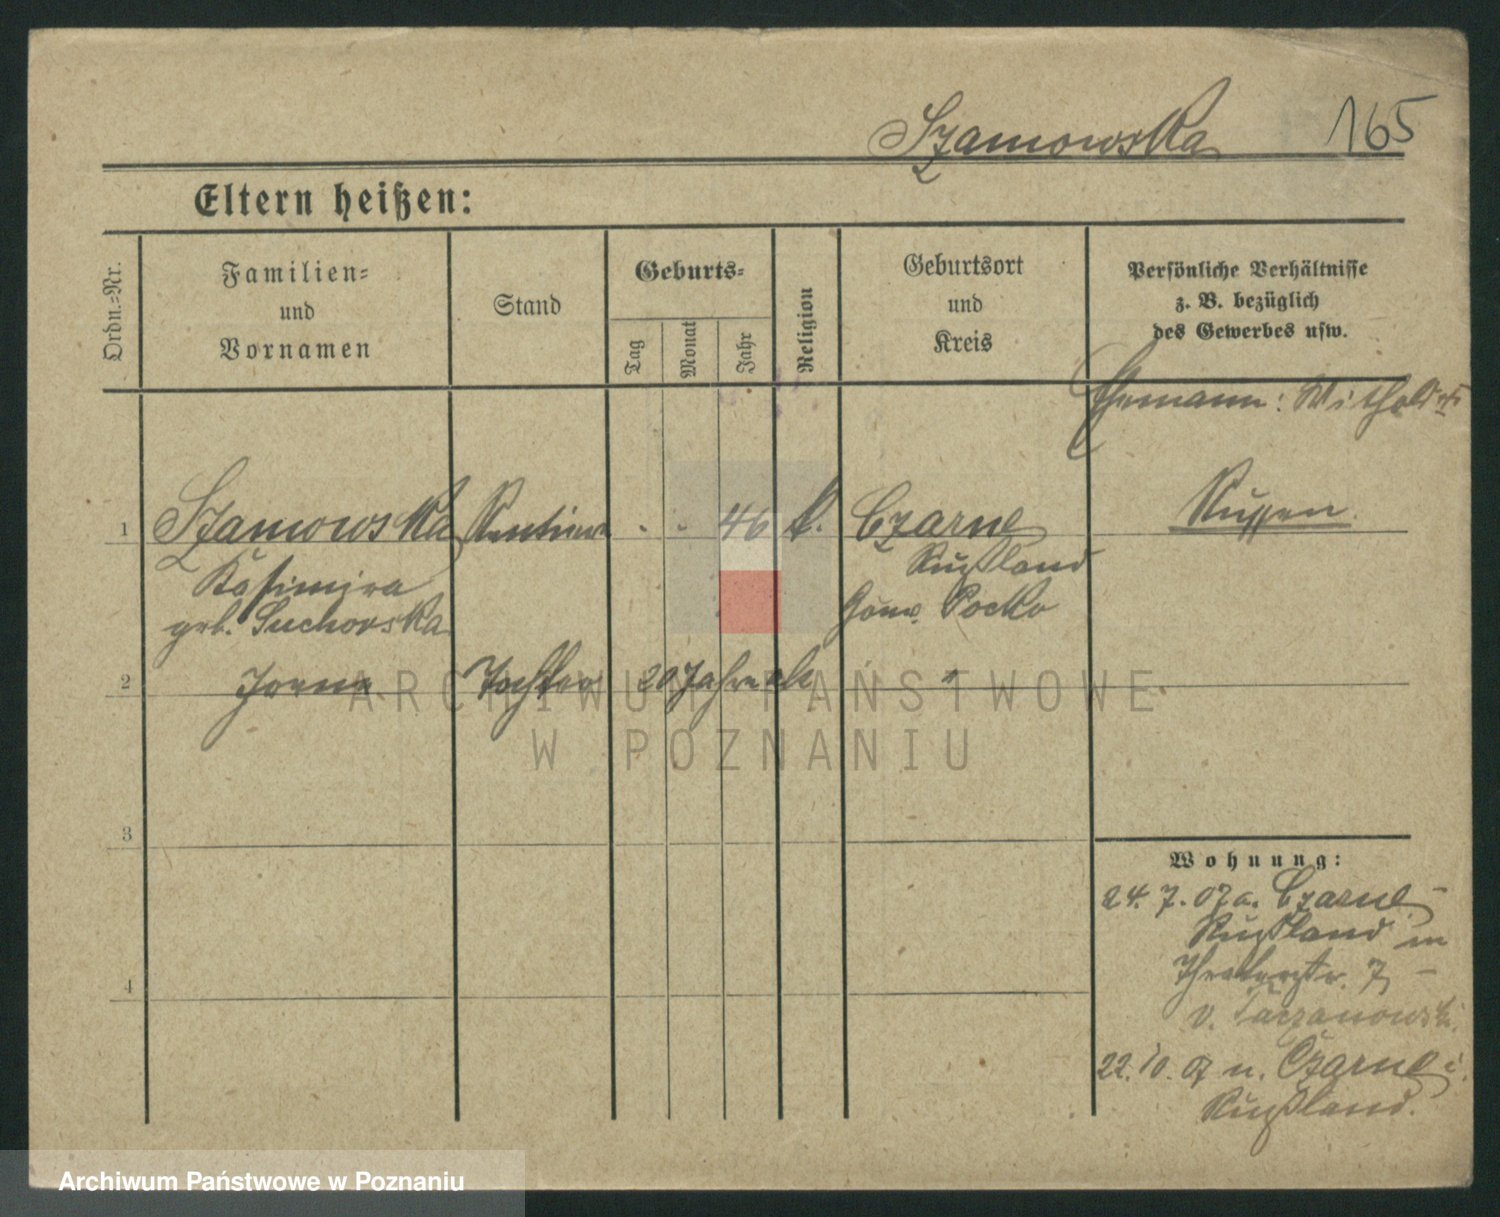 Szamowska 165
Eltern heißen:
Ordn.-Nr.
Familien-
und
Vornamen
Stand
Geburts-
Tag
Monat
Jahr
Religion
Geburtsort
und
Kreis
Persönliche Verhältnisse
z. B. bezüglich
des Gewerbes usw.
Ehemann: Withold
1 Szamowska Rentiere - - 46 k. Czarne Russen
Kasimira Rußland
geb. Suchorska Gouv. Pocko
2 Tochter 20 Jahre alt "
3
4
Wohnung:
24. 7. 07 a. Czarne -
Rußland in
Theaterstr. 7 -
v. Taczanowski.
22. 10. 07 n. Czarne i.
Rußland.
ARCHIWUM PAŃSTWOWE
W POZNANIU
Archiwum Państwowe w Poznaniu